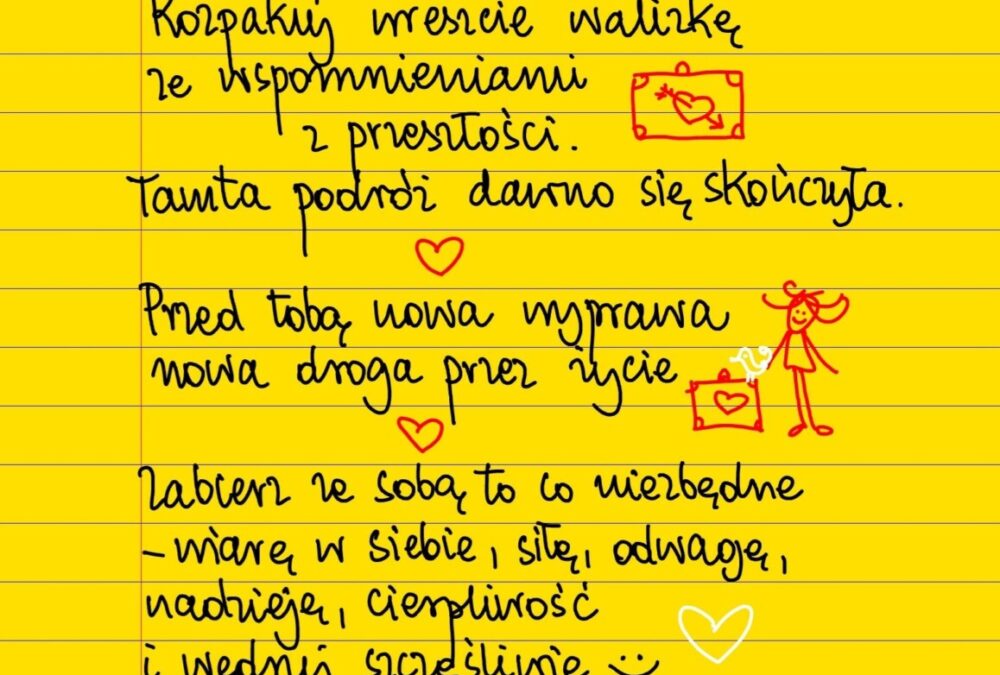 Rozpakuj wreszcie walizkę
ze wspomnieniami
z przeszłości.
Tamta podróż dawno się skończyła.
Przed tobą nowa wyprawa
nowa droga przez życie
Zabierz ze sobą to co niezbędne
– wiarę w siebie, siłę, odwagę,
nadzieję, cierpliwość
i wędruj szczęśliwie :)